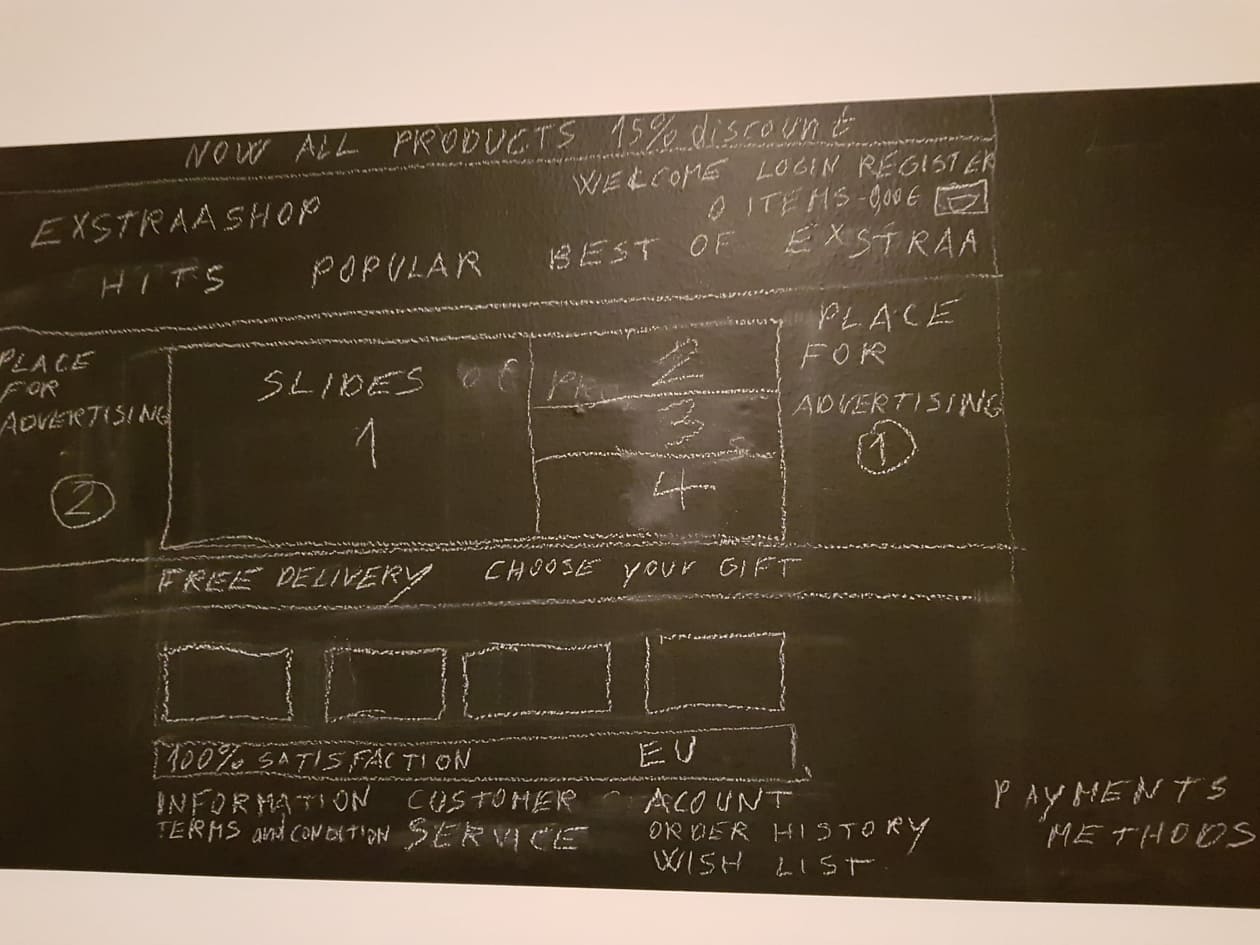 NOW ALL PRODUCTS 15% discount
WELCOME LOGIN REGISTER
EXSTRAASHOP
0 ITEMS-0,00€
HITS POPULAR BEST OF EXSTRAA
PLACE
FOR
ADVERTISING
2
SLIDES OF
1
2
3
4
PLACE
FOR
ADVERTISING
1
FREE DELIVERY CHOOSE YOUR GIFT
100% SATISFACTION EU
INFORMATION CUSTOMER ACOUNT
TERMS and CONDITION SERVICE ORDER HISTORY
WISH LIST
PAYMENTS
METHODS